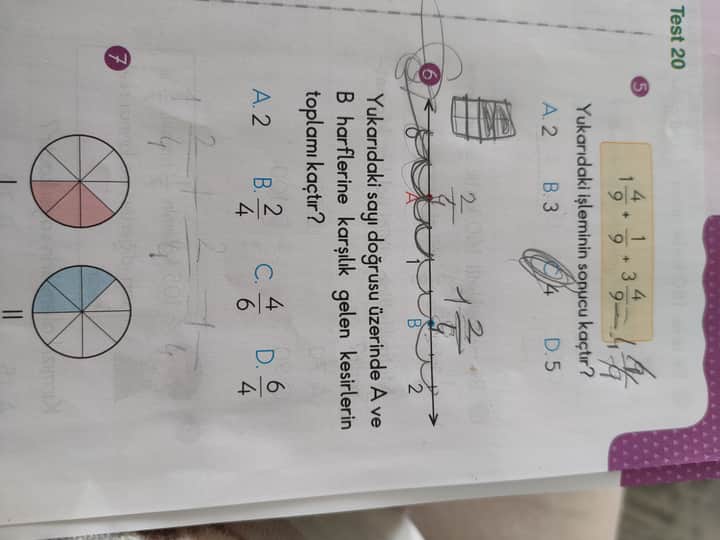 Test 20
5
1 4/9 + 1/9 + 3 4/9
Yukarıdaki işleminin sonucu kaçtır?
A. 2 B. 3 C. 4 D. 5
6
2/4 1 2/4
0 A 1 B 2
Yukarıdaki sayı doğrusu üzerinde A ve
B harflerine karşılık gelen kesirlerin
toplamı kaçtır?
A. 2 B. 2/4 C. 4/6 D. 6/4
7
I II